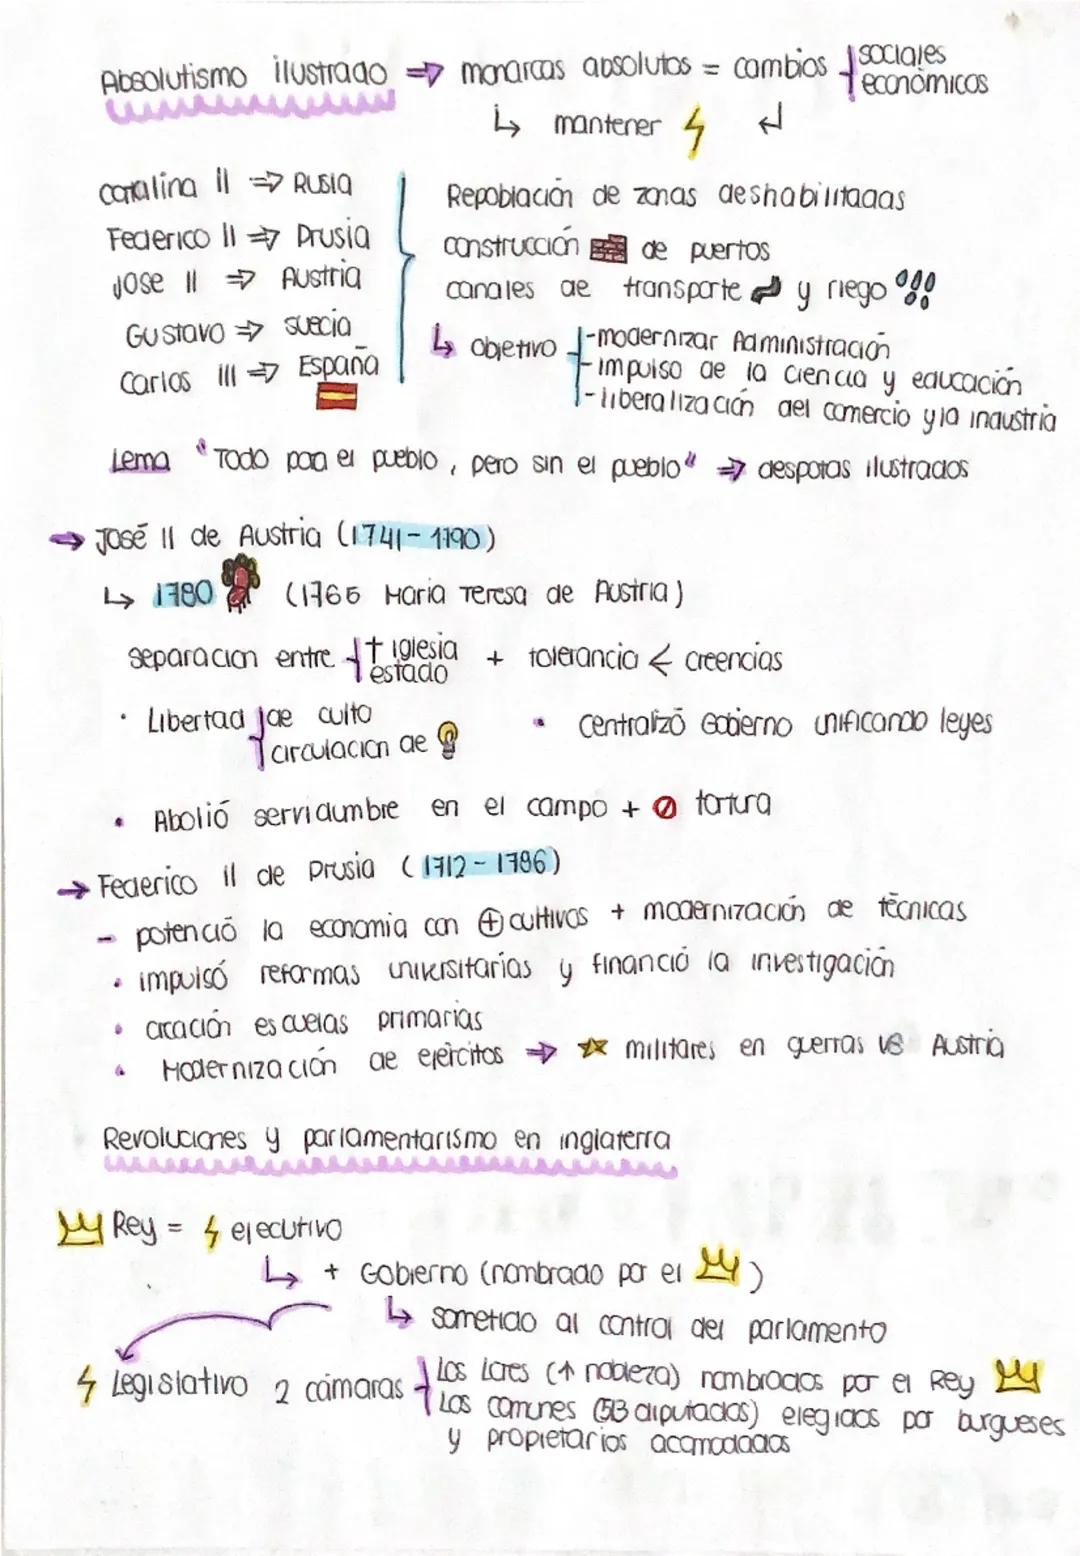 Absolutismo ilustrado ⇒ monarcas absolutos = cambios sociales
económicos
↳ mantener ⚡ ↲
Catalina II ⇒ Rusia
Federico II ⇒ Prusia
Jose II ⇒ Austria
Gustavo ⇒ suecia
Carlos III ⇒ España
Repoblación de zonas deshabilitadas
construcción de puertos
canales de transporte y riego
↳ objetivo -modernizar Administración
-impulso de la ciencia y educación
-liberalización del comercio y la industria
Lema "Todo para el pueblo, pero sin el pueblo" ⇒ despotas ilustrados
→ José II de Austria (1741-1790)
↳ 1780 (1765 Maria Teresa de Austria)
separacion entre iglesia
estado + tolerancia ← creencias
· Libertad de culto
circulacion de
· Centralizó Gobierno unificando leyes
· Abolió servidumbre en el campo + tortura
→ Federico II de Prusia (1712-1786)
- potenció la economia con ⊕ cultivos + modernización de técnicas
· impulsó reformas universitarias y financió la investigación
· creación escuelas primarias
· Modernización de ejércitos ⇒ ☆ militares en guerras vs Austria
Revoluciones y parlamentarismo en inglaterra
Rey = ⚡ ejecutivo
↳ + Gobierno (nombrado por el )
↳ sometido al control del parlamento
⚡ Legislativo 2 cámaras Los Lores (↑ nobleza) nombrados por el Rey
Los comunes (513 diputados) elegidos por burgueses
y propietarios acomodados